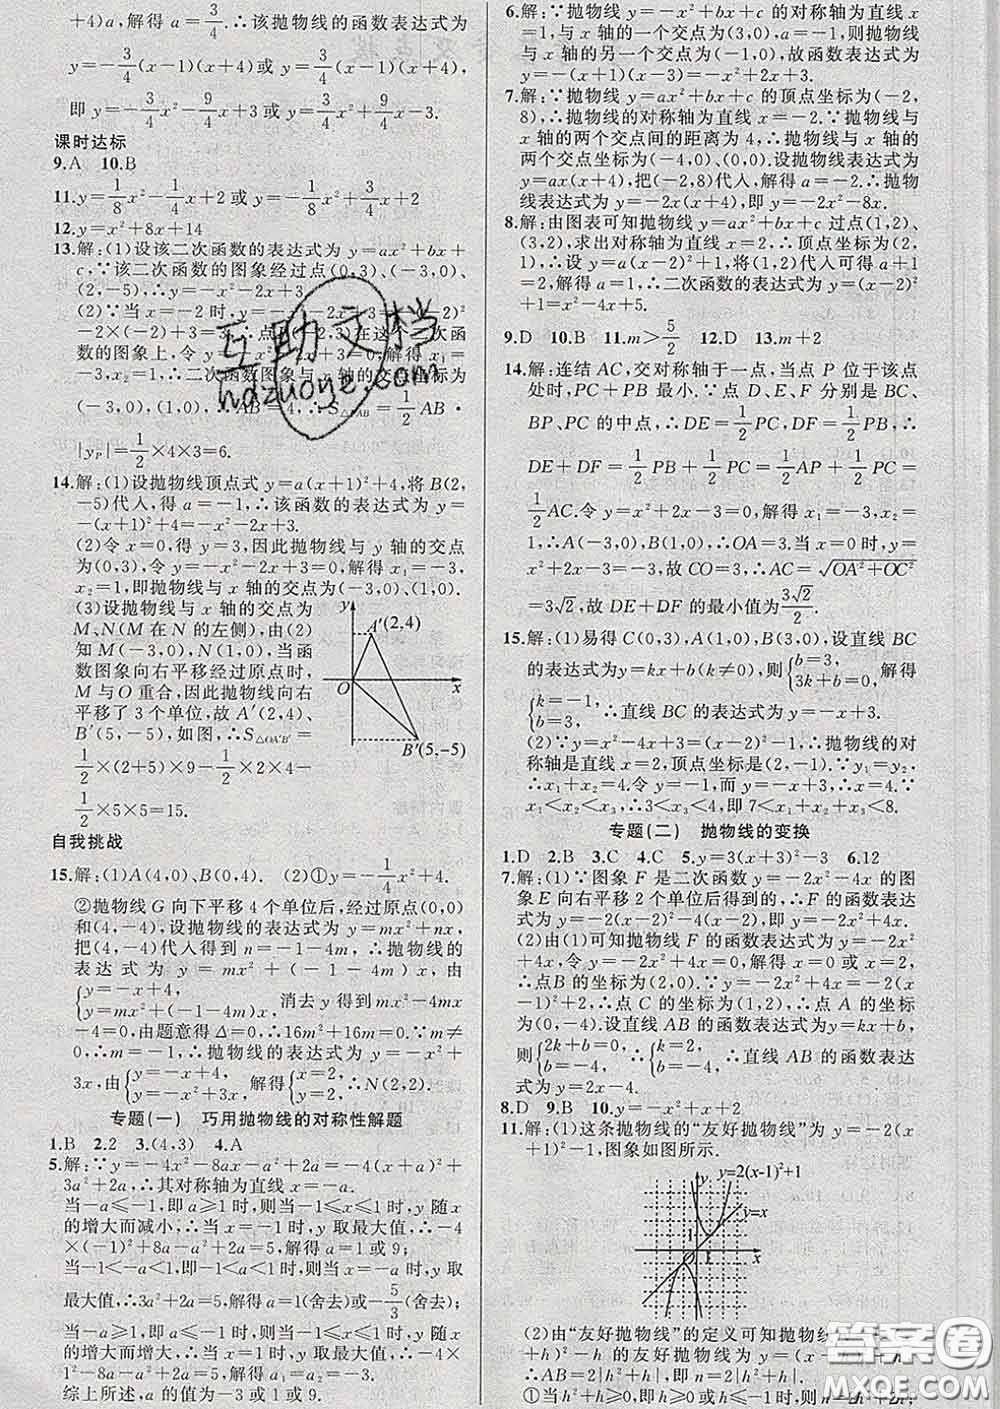 +4)a,解得 a=3/4.∴该抛物线的函数表达式为
y=-3/4(x-1)(x+4)或 y=3/4(x-1)(x+4),
即 y=-3/4x²-9/4x+3 或 y=3/4x²+9/4x-3.
课时达标
9.A 10.B
11.y=1/8x²-1/4x+2 或 y=-1/8x²+3/4x+2
12.y=x²+8x+14
13.解:(1)设该二次函数的表达式为 y=ax²+bx+
c,∵该二次函数的图象经过点(0,3)、(-3,0)、
(2,-5),∴y=-x²-2x+3.
(2)∵当 x=-2 时,y=-(-2)²-
2×(-2)+3=3,∴点P(-2,3)在这个二次函
数的图象上,令-x²-2x+3=0,解得 x₁=
-3,x₂=1,∴二次函数图象与 x 轴的交点坐标为
(-3,0),(1,0),∴AB=4,∴S△PAB=1/2 AB·
|yP|=1/2×4×3=6.
14.解:(1)设抛物线顶点式 y=a(x+1)²+4,将 B(2,
-5)代入,得 a=-1,∴该函数的表达式为 y=
-(x+1)²+4=-x²-2x+3.
(2)令 x=0,得 y=3,因此抛物线与 y 轴的交点
为(0,3),令 y=-x²-2x+3=0,解得 x₁=-3,
x₂=1,即抛物线与 x 轴的交点为(-3,0),(1,0).
(3)设抛物线与 x 轴的交点为
M、N(M 在 N 的左侧),由(2)
知 M(-3,0),N(1,0),当
函数图象向右平移经过原点时,
M 与 O 重合,因此抛物线向右
平移了 3 个单位,故 A′(2,4)、
B′(5,-5),如图,∴S△OA′B′=
1/2×(2+5)×9-1/2×2×4-
1/2×5×5=15.
y
A′(2,4)
O
x
B′(5,-5)
自我挑战
15.解:(1)A(4,0)、B(0,4). (2)①y=-1/4x²+4.
②抛物线 G 向下平移 4 个单位后,经过原点(0,0)
和(4,-4),设抛物线的表达式为 y=mx²+nx,
把(4,-4)代入得到 n=-1-4m,∴抛物线的
表达式为 y=mx²+(-1-4m)x,由
{y=-x+4, y=mx²+(-1-4m)x, 消去 y 得到 mx²-4mx
-4=0,由题意得 Δ=0,∴16m²+16m=0,∵m≠
0,∴m=-1,∴抛物线的表达式为 y=-x²+
3x,由{y=-x+4, y=-x²+3x, 解得{x=2, y=2,∴N(2,2).
专题(一) 巧用抛物线的对称性解题
1.B 2.2 3.(4,3) 4.A
5.解:∵y=-4x²-8ax-a²+2a=-4(x+a)²+
3a²+2a,∴其对称轴为直线 x=-a.
当-a≤-1,即 a≥1 时,则当-1≤x≤1 时,y 随 x
的增大而减小,∴当 x=-1 时,y 取最大值,∴-4
×(-1)²+8a-a²+2a=5,解得 a=1 或 9;
当-1<-a<1,即-1<a<1 时,则当 x=-a 时,y 取
最大值,∴3a²+2a=5,解得 a=1(舍去)或-5/3(舍去);
当-a≥1,即 a≤-1 时,则当-1≤x≤1 时,y 随 x 的
增大而增大,∴当 x=1 时,y 取最大值,∴-4
×1²-8a-a²+2a=5,解得 a=-3 或-3.
综上所述,a 的值为-3 或 1 或 9.
6.解:∵抛物线 y=-x²+bx+c 的对称轴为直线 x
=1,与 x 轴的一个交点为(3,0),∴则抛物线与 x
轴的另一个交点为(-1,0),∵a=-1,故函数表达
式为 y=-(x+1)(x-3)=-x²+2x+3.
7.解:∵抛物线 y=ax²+bx+c 的顶点坐标为(-2,
8),∴抛物线的对称轴为直线 x=-2.∵抛物线与 x
轴的两个交点间的距离为 4,∴抛物线与 x 轴的
两个交点坐标为(-4,0)、(0,0).设抛物线表达式为
y=ax(x+4),把(-2,8)代入,解得 a=-2.∴抛物
线表达式为 y=-2x(x+4),即 y=-2x²-8x.
8.解:由图表可知抛物线 y=ax²+bx+c 过点(1,2)、
(3,2),求出对称轴为直线 x=2,∴顶点坐标为
(2,1),设 y=a(x-2)²+1,将(1,2)代入可得 a+1
=2,解得 a=1,∴二次函数表达式为 y=(x-2)²
+1=x²-4x+5.
9.D 10.B 11.m>5/2 12.D 13.m+2
14.解:连结 AC,交对称轴于一点,当点 P 位于该点
处时,PC+PB 最小.∵点 D、E、F 分别是 BC、
BP、PC 的中点,∴DE=1/2PC,DF=1/2PB,∴
DE+DF=1/2PB+1/2PC=1/2AP+1/2PC=
1/2AC.令 y=x²+2x-3=0,解得 x₁=-3,x₂=
1,∴A(-3,0),B(1,0),∴OA=3.当 x=0 时,y=
x²+2x-3=-3,故 CO=3,∴AC=√OA²+OC²
=3√2,故 DE+DF 的最小值为3√2/2.
15.解:(1)易得 C(0,3),A(1,0),B(3,0),设直线 BC
的表达式为y=kx+b(k≠0),则{b=3, 3k+b=0,解得
{k=-1, b=3,∴直线 BC 的表达式为 y=-x+3.
(2)∵y=x²-4x+3=(x-2)²-1,∴抛物线的对
称轴是直线 x=2,顶点坐标是(2,-1).∵y₁=y₂,
∴x₁+x₂=4.令 y=-1,而 y=-x+3,x=4.∵
x₁<x₂<x₃,∴3<x₃<4,即 7<x₁+x₂+x₃<8.
专题(二) 抛物线的变换
1.D 2.B 3.C 4.C 5.y=3(x+3)²-3 6.12
7.解:(1)∵图象 F 是二次函数 y=-2x²-4x 的图
象 E 向右平移 2 个单位后得到的,∴F 的函数表达
式为 y=-2(x-2)²-4(x-2),即 y=-2x²+4x.
(2)由(1)可知抛物线 F 的函数表达式为 y=-2x²
+4x,令y=0,得-2x²+4x=0,解得 x=0 或 x=2,
∴点B 的坐标为(2,0),∵y=-2x²+4x=-2(x
-1)²+2,∴点 C 的坐标为(1,2),∴点 A 的坐标
为(0,-4).设直线 AB 的函数表达式为 y=kx+b,
则{2k+b=0, b=-4,∴{k=2, b=-4,∴直线 AB 的函数表达
式为 y=2x-4.
8.D 9.B 10.y=-x²+x+2
11.解:(1)这条抛物线的“友好抛物线”为 y=-2(x
+1)²-1,图象如图所示.
y=2(x-1)²+1
y=x
x
(2)由“友好抛物线”的定义可知抛物线
+h)²-h 的友好抛物线为 y=(x-h²
①当 h²+h≤-1,则
互助文档
hdzuoye.com
答案圈
MXQE.COM